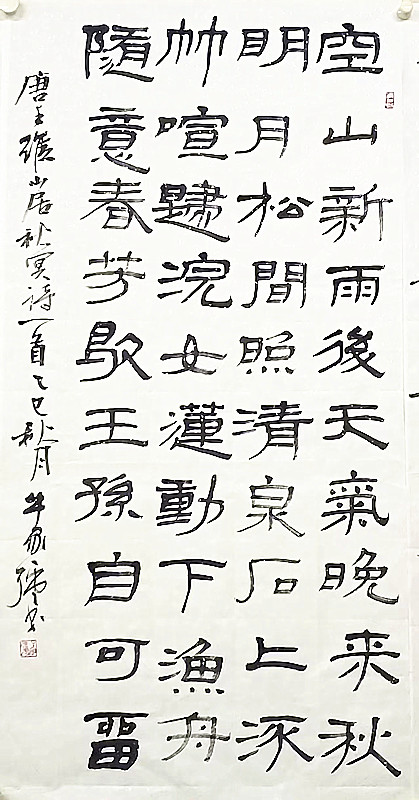 空山新雨後天氣晚来秋
明月松間照清泉石上流
竹喧歸浣女蓮動下漁舟
隨意春芳歇王孫自可留
唐王維山居秋冥诗一首乙巳秋月牛家强书